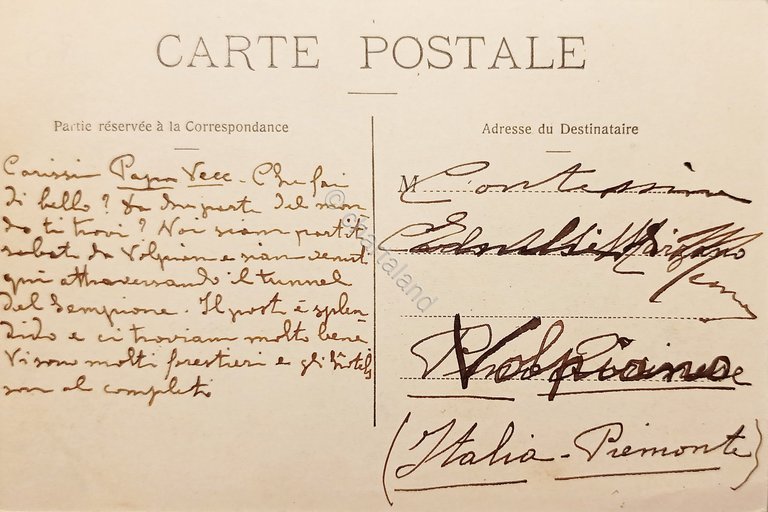 CARTE POSTALE
Partie réservée à la Correspondance
Carissi Papa Vecc. - Che fai
di bello? Da che parte del mon
do ti trovi? Noi siam partit
sabato da Volpian e siam venut
qui attraversando il tunnel
del Sempione. Il posto è splen-
dido e ci troviam molto bene
Vi sono molti forestieri e gli hôtels
son al completo
Adresse du Destinataire
M Contessina
Volpiano
(Italia - Piemonte)
© chartaland